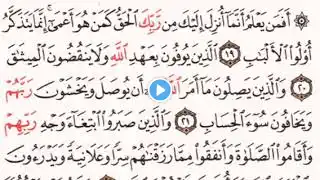 ۞ أَفَمَن يَعْلَمُ أَنَّمَا أُنزِلَ إِلَيْكَ مِن رَبِّكَ الْحَقُّ كَمَنْ هُوَ أَعْمَىٰ إِنَّمَا يَتَذَكَّرُ
أُولُوا الْأَلْبَابِ ١٩ الَّذِينَ يُوفُونَ بِعَهْدِ اللَّهِ وَلَا يَنقُضُونَ الْمِيثَاقَ
٢٠ وَالَّذِينَ يَصِلُونَ مَا أَمَرَ أَن يُوصَلَ وَيَخْشَوْنَ رَبَّهُمْ
وَيَخَافُونَ سُوءَ الْحِسَابِ ٢١ وَالَّذِينَ صَبَرُوا ابْتِغَاءَ وَجْهِ رَبِّهِمْ
وَأَقَامُوا الصَّلَوٰةَ وَأَنفَقُوا مِمَّا رَزَقْنَٰهُمْ سِرًّا وَعَلَانِيَةً وَيَدْرَءُونَ